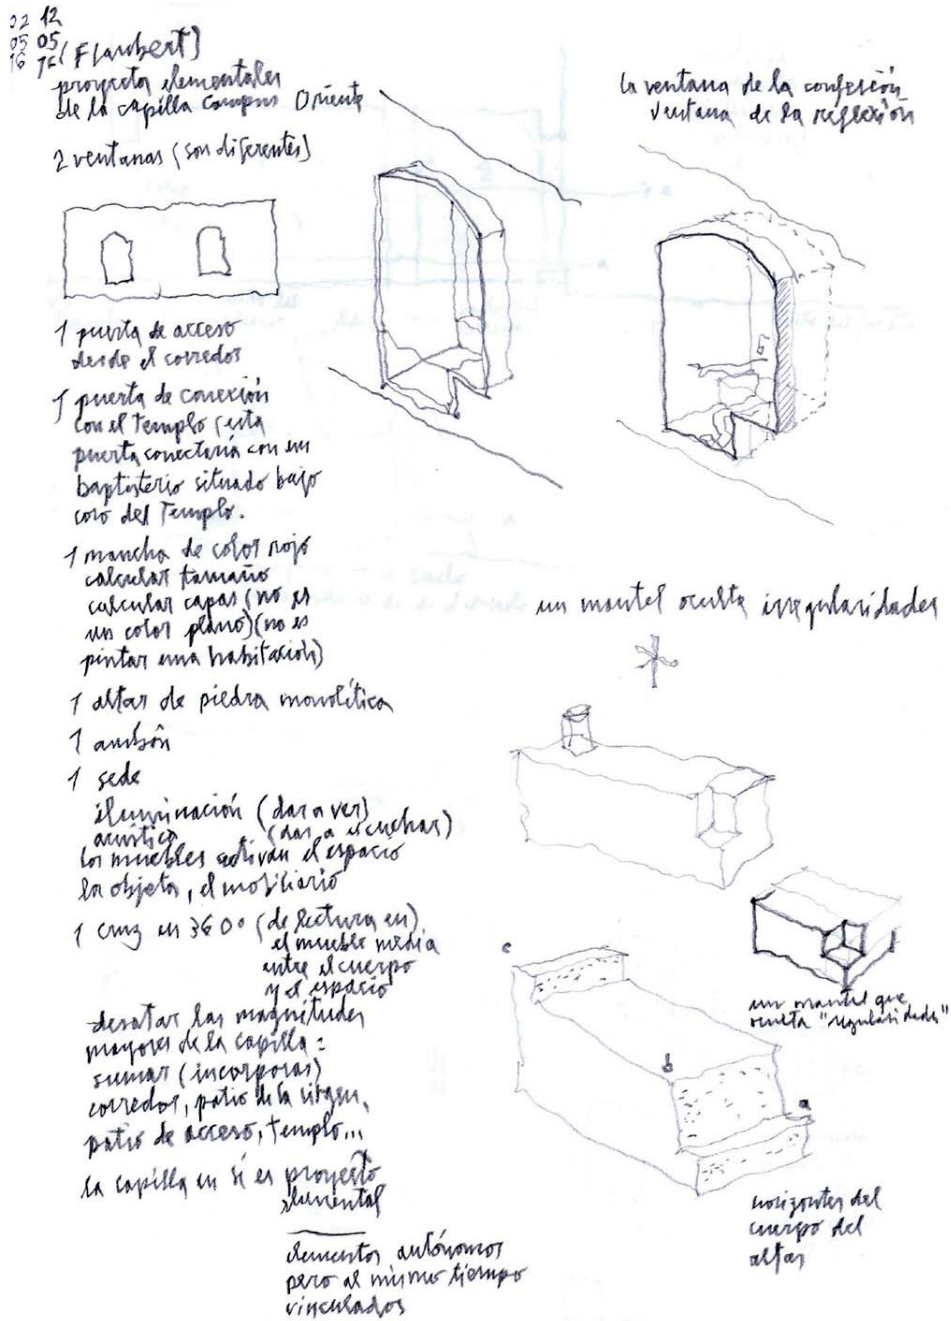 22 12
05 05
16 16 (Flaubert)
proyectos elementales
de la capilla campus Oriente
2 ventanas (son diferentes)
1 puerta de acceso
desde el corredor
1 puerta de conexión
con el Templo (esta
puerta conectaría con un
baptisterio situado bajo
coro del Templo.
1 mancha de color rojo
calcular tamaño
calcular capas (no es
un color plano) (no es
pintar una habitación)
1 altar de piedra monolítica
1 ambón
1 sede
iluminación (dar a ver)
acústica (dar a escuchar)
los muebles activan el espacio
los objetos, el mobiliario
1 cruz en 360° (de lectura en)
el mueble media
entre el cuerpo
y el espacio
desatar las magnitudes
mayores de la capilla:
sumar (incorporar)
corredor, patio de la virgen,
patio de acceso, templo...
la capilla en sí es proyecto
elemental
elementos autónomos
pero al mismo tiempo
vinculados
la ventana de la confesión
ventana de la reflexión
un mantel oculta irregularidades
un mantel que
oculta "regularidades"
c
b
a
horizontes del
cuerpo del
altar